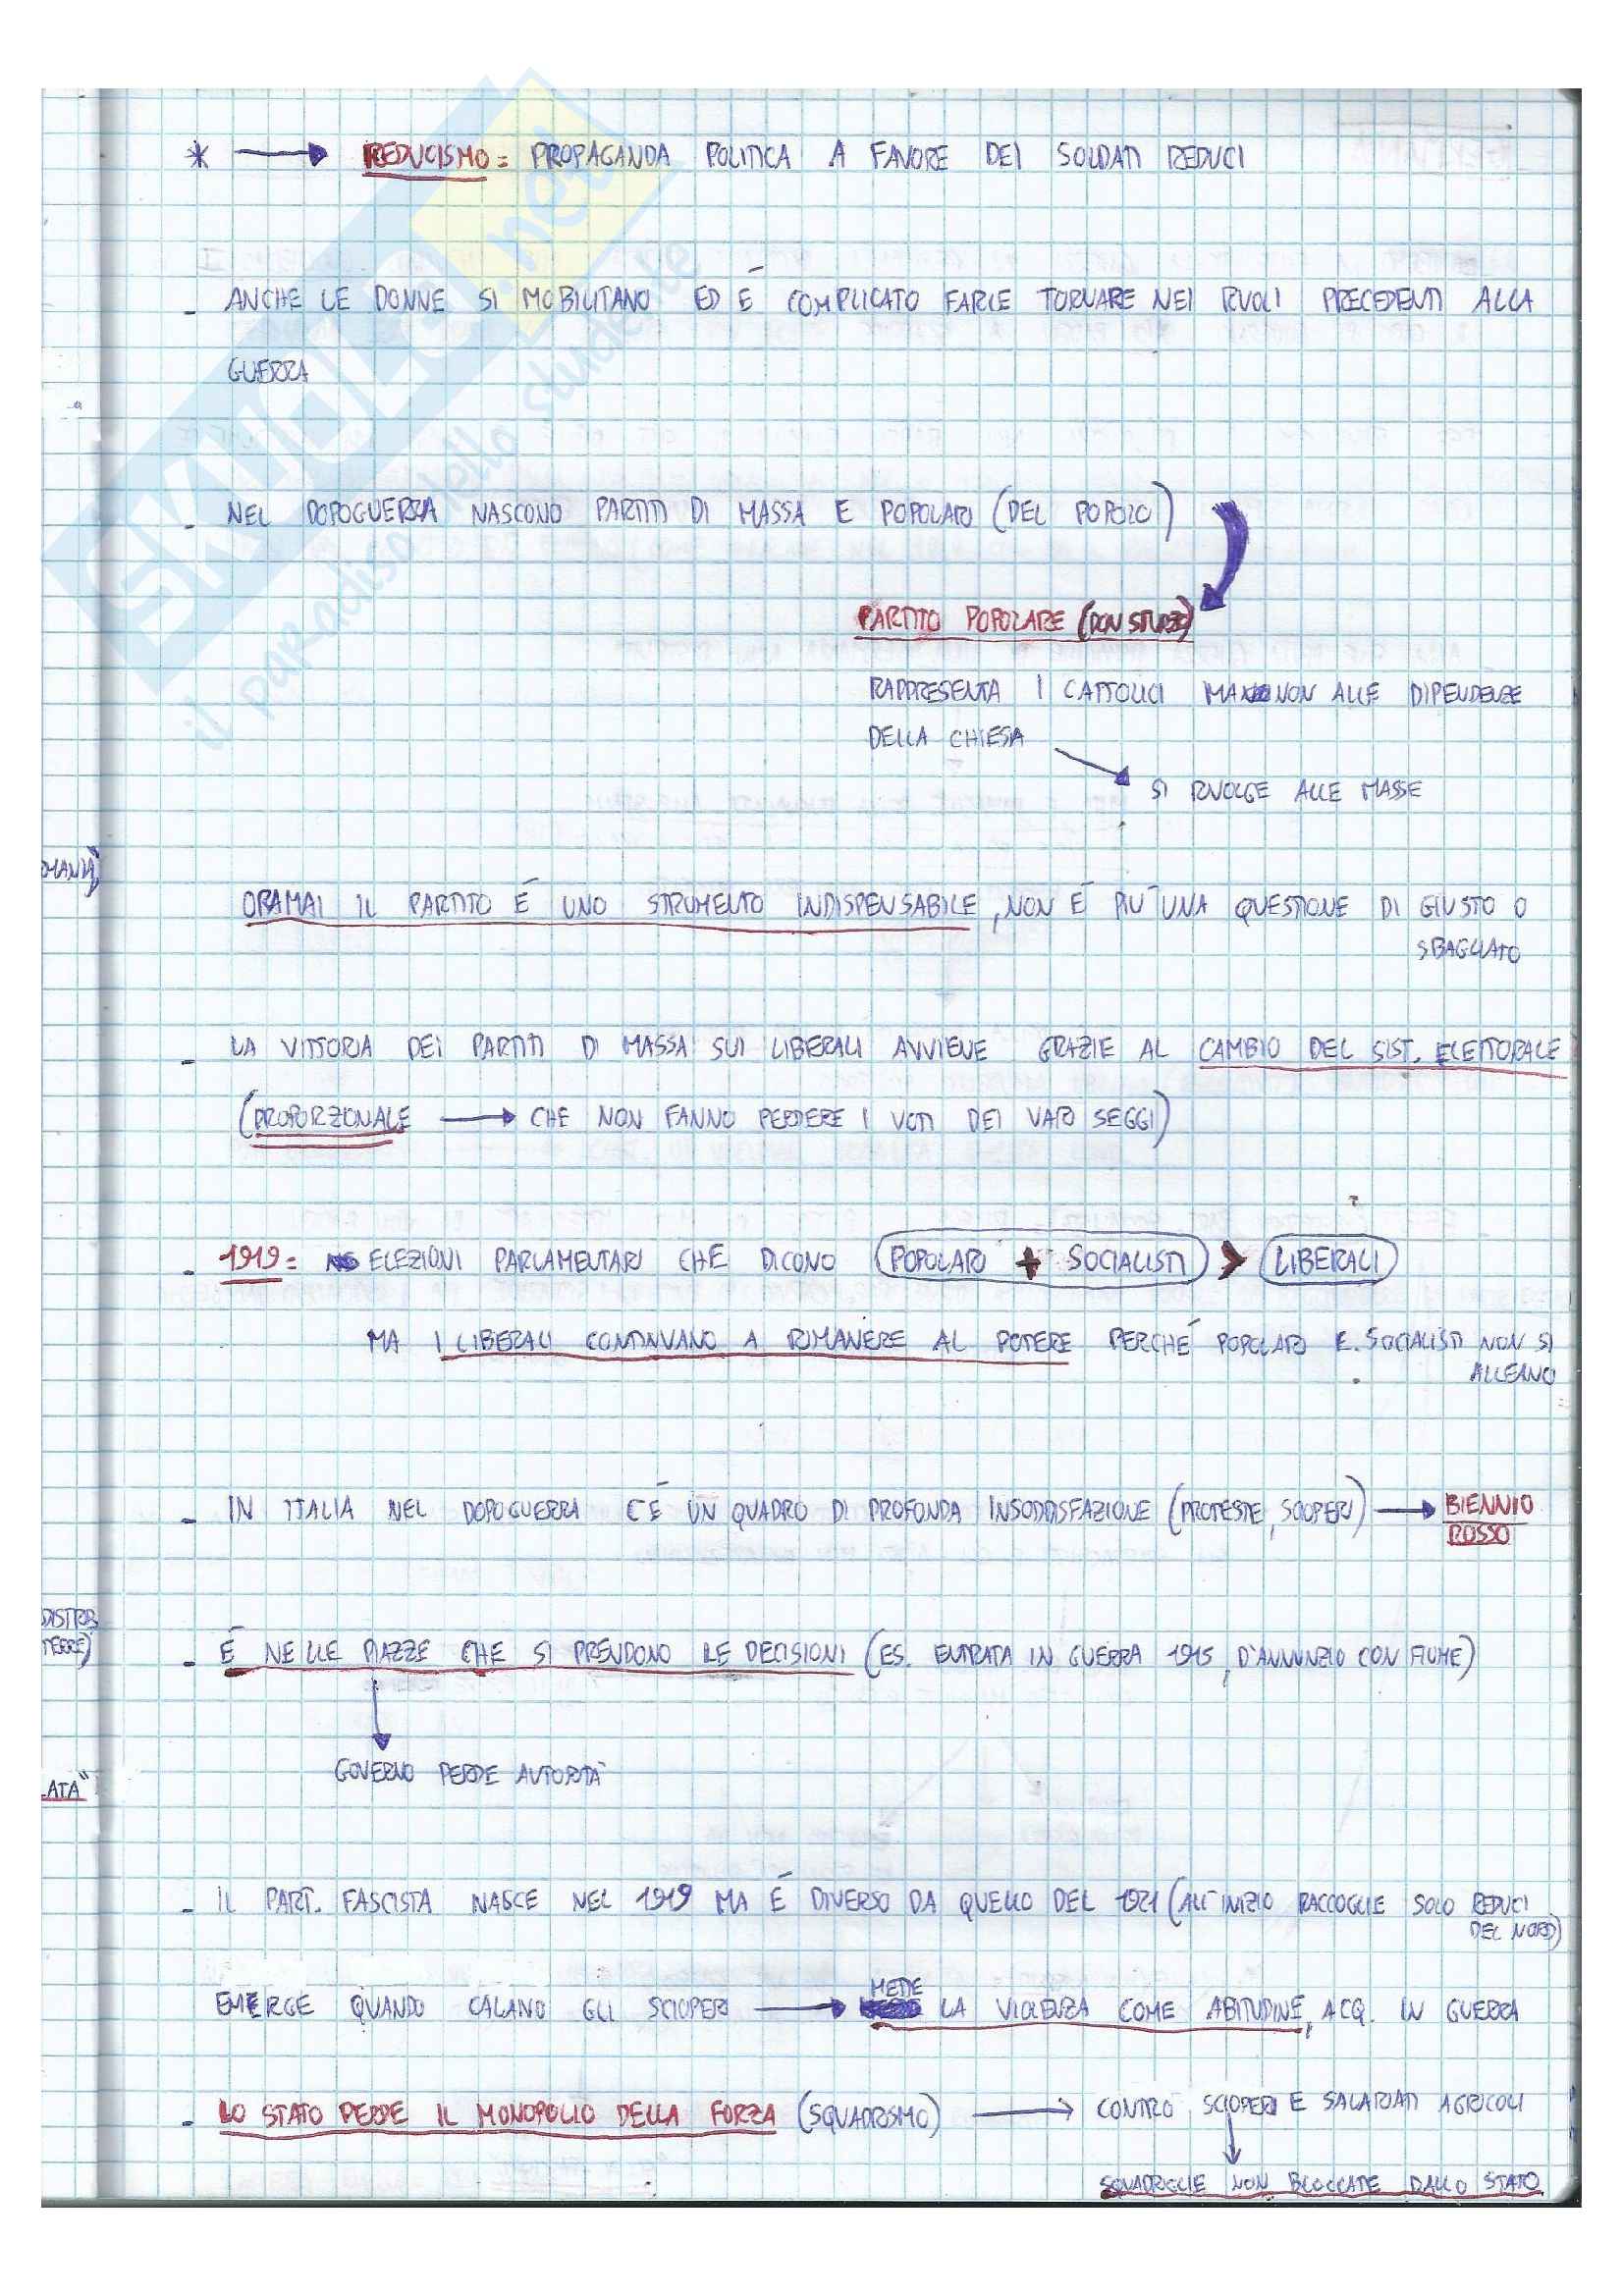 * → REDUCISMO = PROPAGANDA POLITICA A FAVORE DEI SOLDATI REDUCI
- ANCHE LE DONNE SI MOBILITANO ED É COMPLICATO FARLE TORNARE NEI RUOLI PRECEDENTI ALLA
GUERRA
- NEL DOPOGUERRA NASCONO PARTITI DI MASSA E POPOLARI (DEL POPOLO)
PARTITO POPOLARE (DON STURZO)
RAPPRESENTA I CATTOLICI MA NON ALLE DIPENDENZE
DELLA CHIESA
→ SI RIVOLGE ALLE MASSE
OMANIA"
ORAMAI IL PARTITO É UNO STRUMENTO INDISPENSABILE, NON É PIÚ UNA QUESTIONE DI GIUSTO O
SBAGLIATO
- LA VITTORIA DEI PARTITI DI MASSA SUI LIBERALI AVVIENE GRAZIE AL CAMBIO DEL SIST. ELETTORALE
(PROPORZIONALE → CHE NON FANNO PERDERE I VOTI DEI VARI SEGGI)
- 1919 = ELEZIONI PARLAMENTARI CHE DICONO POPOLARI + SOCIALISTI > LIBERALI
MA I LIBERALI CONTINUANO A RIMANERE AL POTERE PERCHÉ POPOLARI E SOCIALISTI NON SI
ALLEANO
- IN ITALIA NEL DOPOGUERRA C'É UN QUADRO DI PROFONDA INSODDISFAZIONE (PROTESTE, SCIOPERI) → BIENNIO
ROSSO
DISTRIB
TERRE)
- É NELLE PIAZZE CHE SI PRENDONO LE DECISIONI (ES. ENTRATA IN GUERRA 1915, D'ANNUNZIO CON FIUME)
GOVERNO PERDE AUTORITÀ
LATA"
- IL PART. FASCISTA NASCE NEL 1919 MA É DIVERSO DA QUELLO DEL 1921 (ALL'INIZIO RACCOGLIE SOLO REDUCI
DEL NORD)
EMERGE QUANDO CALANO GLI SCIOPERI → METTE LA VIOLENZA COME ABITUDINE, ACQ. IN GUERRA
- LO STATO PERDE IL MONOPOLIO DELLA FORZA (SQUADRISMO) → CONTRO SCIOPERI E SALARIATI AGRICOLI
SQUADRIGLIE NON BLOCCATE DALLO STATO
SKUOLA.net
il paradiso dello studente